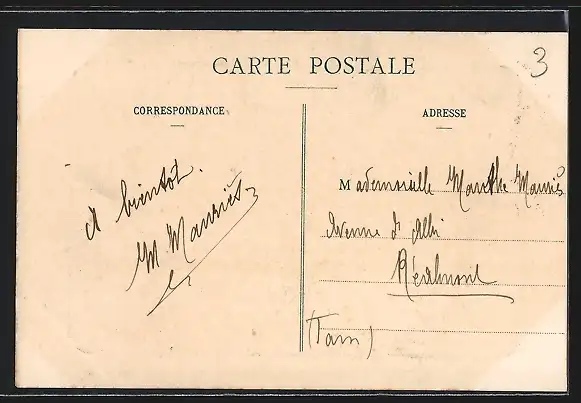 CARTE POSTALE
3
CORRESPONDANCE
ADRESSE
A bientôt.
M Mauriès
Mademoiselle Marthe Mauriès
Avenue d'Albi
Réalmont
(Tarn)